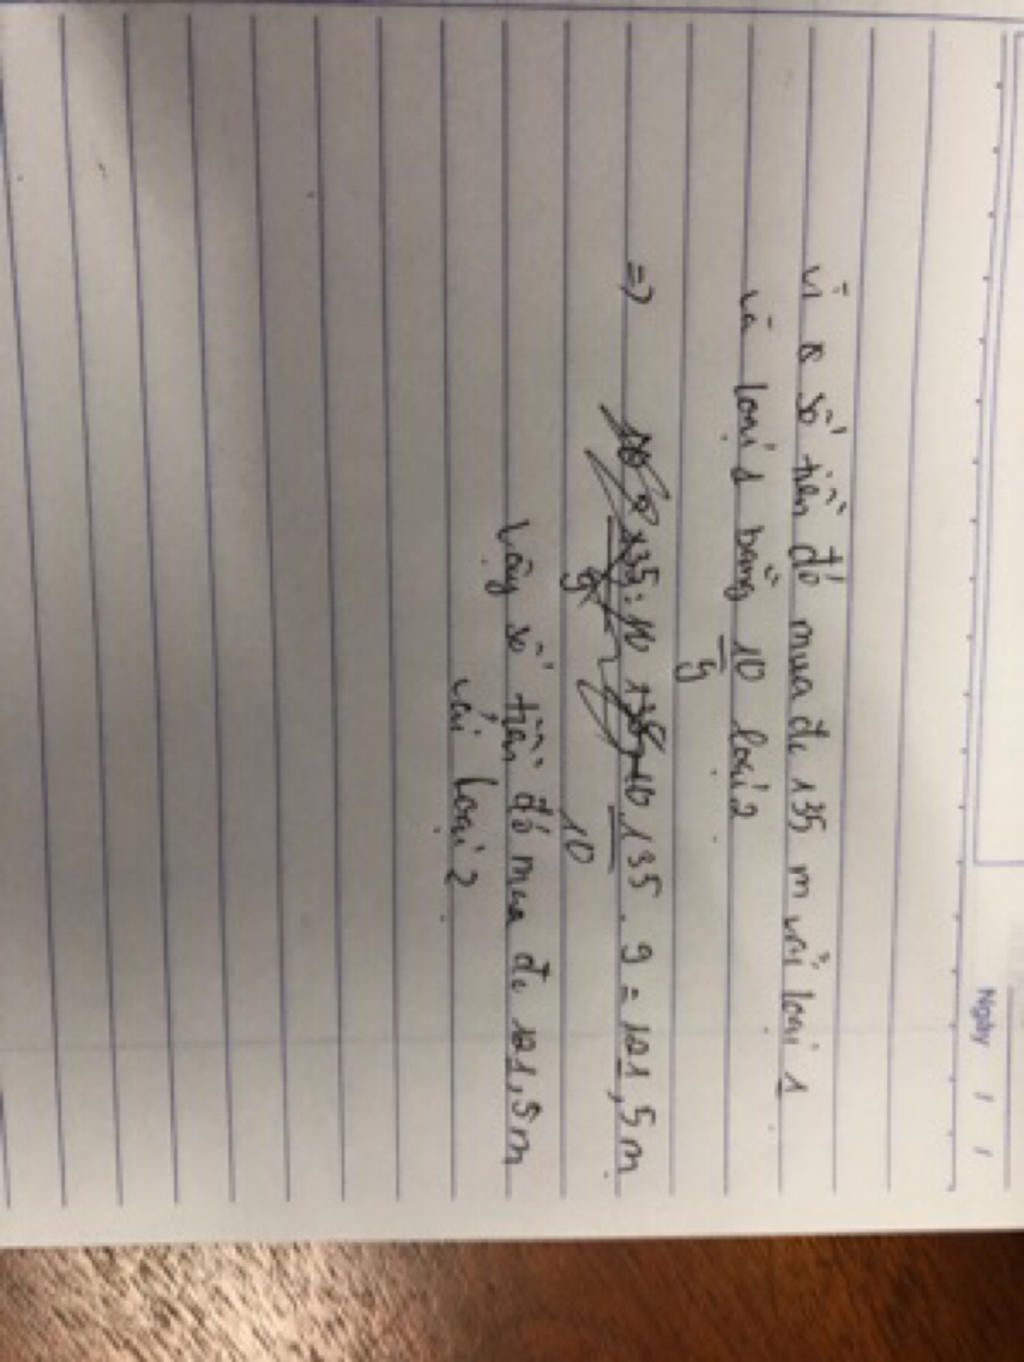 Ngày / /
Vì số tiền đó mua đc 135 m vải loại 1
và loại 1 bằng 10 loại 2
9
=> 135 . 9 = 121,5m
10
Vậy số tiền đó mua đc 121,5m
vải loại 2